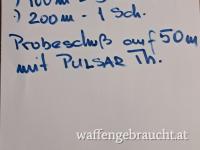 :) 200m - 1 Sch.
Probeschuß auf 50m
mit PULSAR Th.
waffengebraucht.at